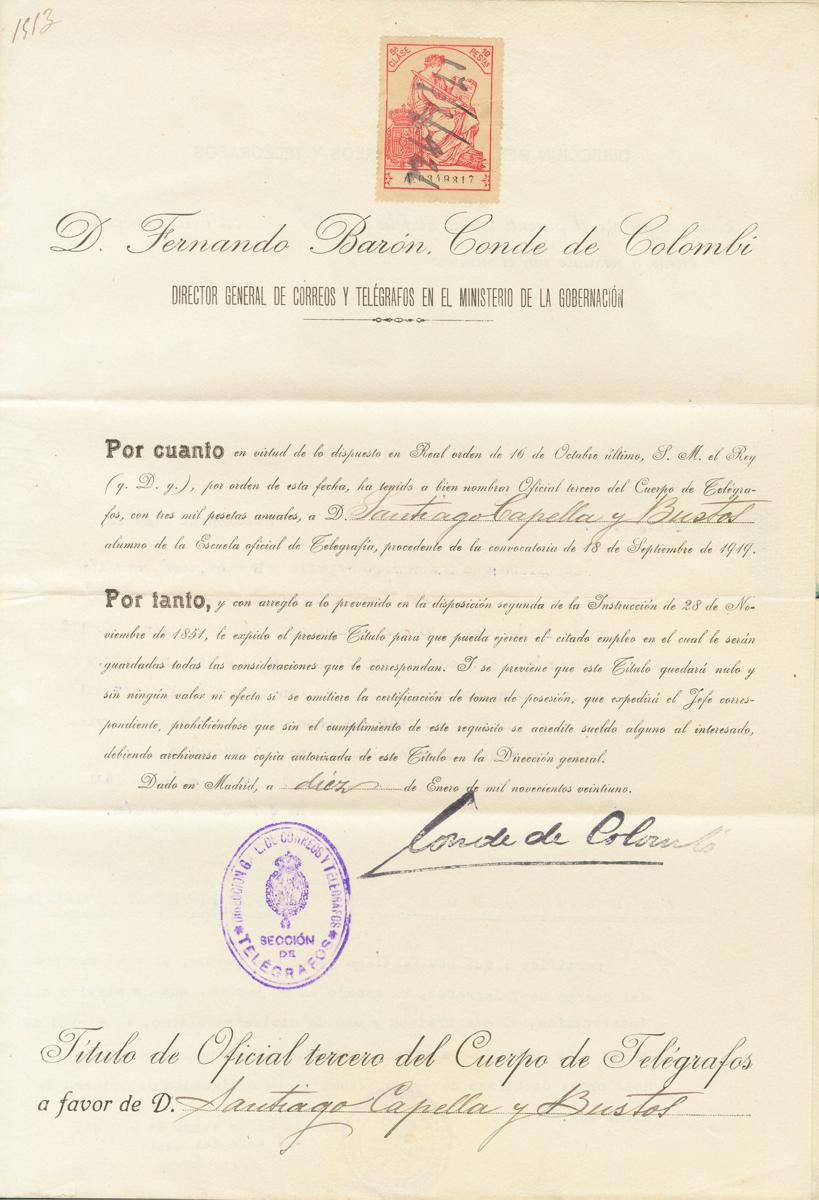 1913
5ª CLASE 10 PESTAS
A.0349817
D. Fernando Barón, Conde de Colombí
DIRECTOR GENERAL DE CORREOS Y TELÉGRAFOS EN EL MINISTERIO DE LA GOBERNACIÓN
Por cuanto en virtud de lo dispuesto en Real orden de 16 de Octubre último, S. M. el Rey
(q. D. g.), por orden de esta fecha, ha tenido a bien nombrar Oficial tercero del Cuerpo de Telégra-
fos, con tres mil pesetas anuales, a D. Santiago Capella y Bustos
alumno de la Escuela oficial de Telegrafía, procedente de la convocatoria de 18 de Septiembre de 1919.
Por tanto, y con arreglo a lo prevenido en la disposición segunda de la Instrucción de 28 de No-
viembre de 1851, le expido el presente Título para que pueda ejercer el citado empleo en el cual le serán
guardadas todas las consideraciones que le correspondan. I se previene que este Título quedará nulo y
sin ningún valor ni efecto si se omitiere la certificación de toma de posesión, que expedirá el Jefe corres-
pondiente, prohibiéndose que sin el cumplimiento de este requisito se acredite sueldo alguno al interesado,
debiendo archivarse una copia autorizada de este Título en la Dirección general.
Dado en Madrid, a diez de Enero de mil novecientos veintiuno.
Conde de Colombí
DIRECCION G L. DE CORREOS Y TELEGRAFOS
SECCIÓN
DE
TELÉGRAFOS
Título de Oficial tercero del Cuerpo de Telégrafos
a favor de D. Santiago Capella y Bustos